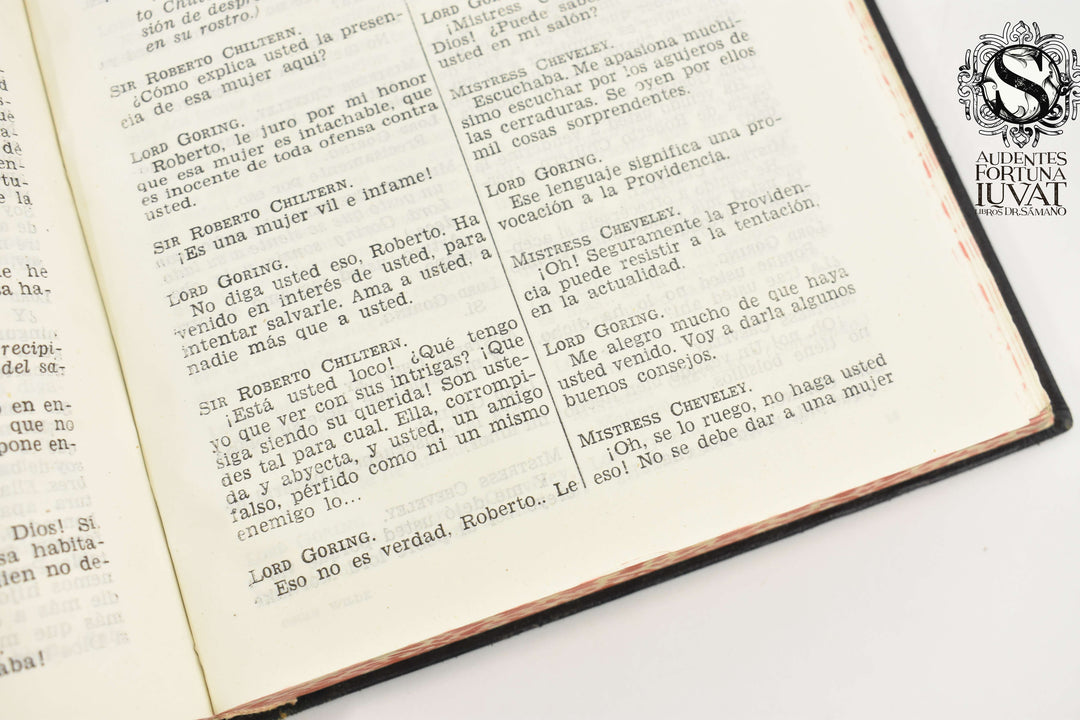 ué
a-
dè
en-
tu-
e la
e he
sa ha-
recipi-
del sa-
o en en-
que no
pone en-
Dios! Si,
sa habita-
uien no de-
aba!
sión de despre
en su rostro.)
SIR ROBERTO CHILTERN.
¿Cómo explica usted la presen-
cia de esa mujer aquí?
LORD GORING.
Roberto, le juro por mi honor
que esa mujer es intachable, que
es inocente de toda ofensa contra
usted.
SIR ROBERTO CHILTERN.
¡Es una mujer vil e infame!
LORD GORING.
No diga usted eso, Roberto. Ha
venido en interés de usted, para
intentar salvarle. Ama a usted, a
nadie más que a usted.
SIR ROBERTO CHILTERN.
¡Está usted loco! ¿Qué tengo
yo que ver con sus intrigas? ¡Que
siga siendo su querida! Son uste-
des tal para cual. Ella, corrompi-
da y abyecta, y usted, un amigo
falso, pérfido como ni un mismo
enemigo lo...
LORD GORING.
Eso no es verdad, Roberto.. Le
LORD GO
¡Mistress C
Dios! ¿Puede sabe
usted en mi salón?
MISTRESS CHEVELEY.
Escuchaba. Me apasiona muchi-
simo escuchar por los agujeros de
las cerraduras. Se oyen por ellos
mil cosas sorprendentes.
LORD GORING.
Ese lenguaje significa una pro-
vocación a la Providencia.
MISTRESS CHEVELEY.
¡Oh! Seguramente la Providen-
cia puede resistir a la tentación,
en la actualidad.
LORD GORING.
Me alegro mucho de que haya
usted venido. Voy a darla algunos
buenos consejos.
MISTRESS CHEVELEY.
¡Oh, se lo ruego, no haga usted
eso! No se debe dar a una mujer
S
AUDENTES
FORTUNA
IUVAT
LIBROS DR. SÁMANO